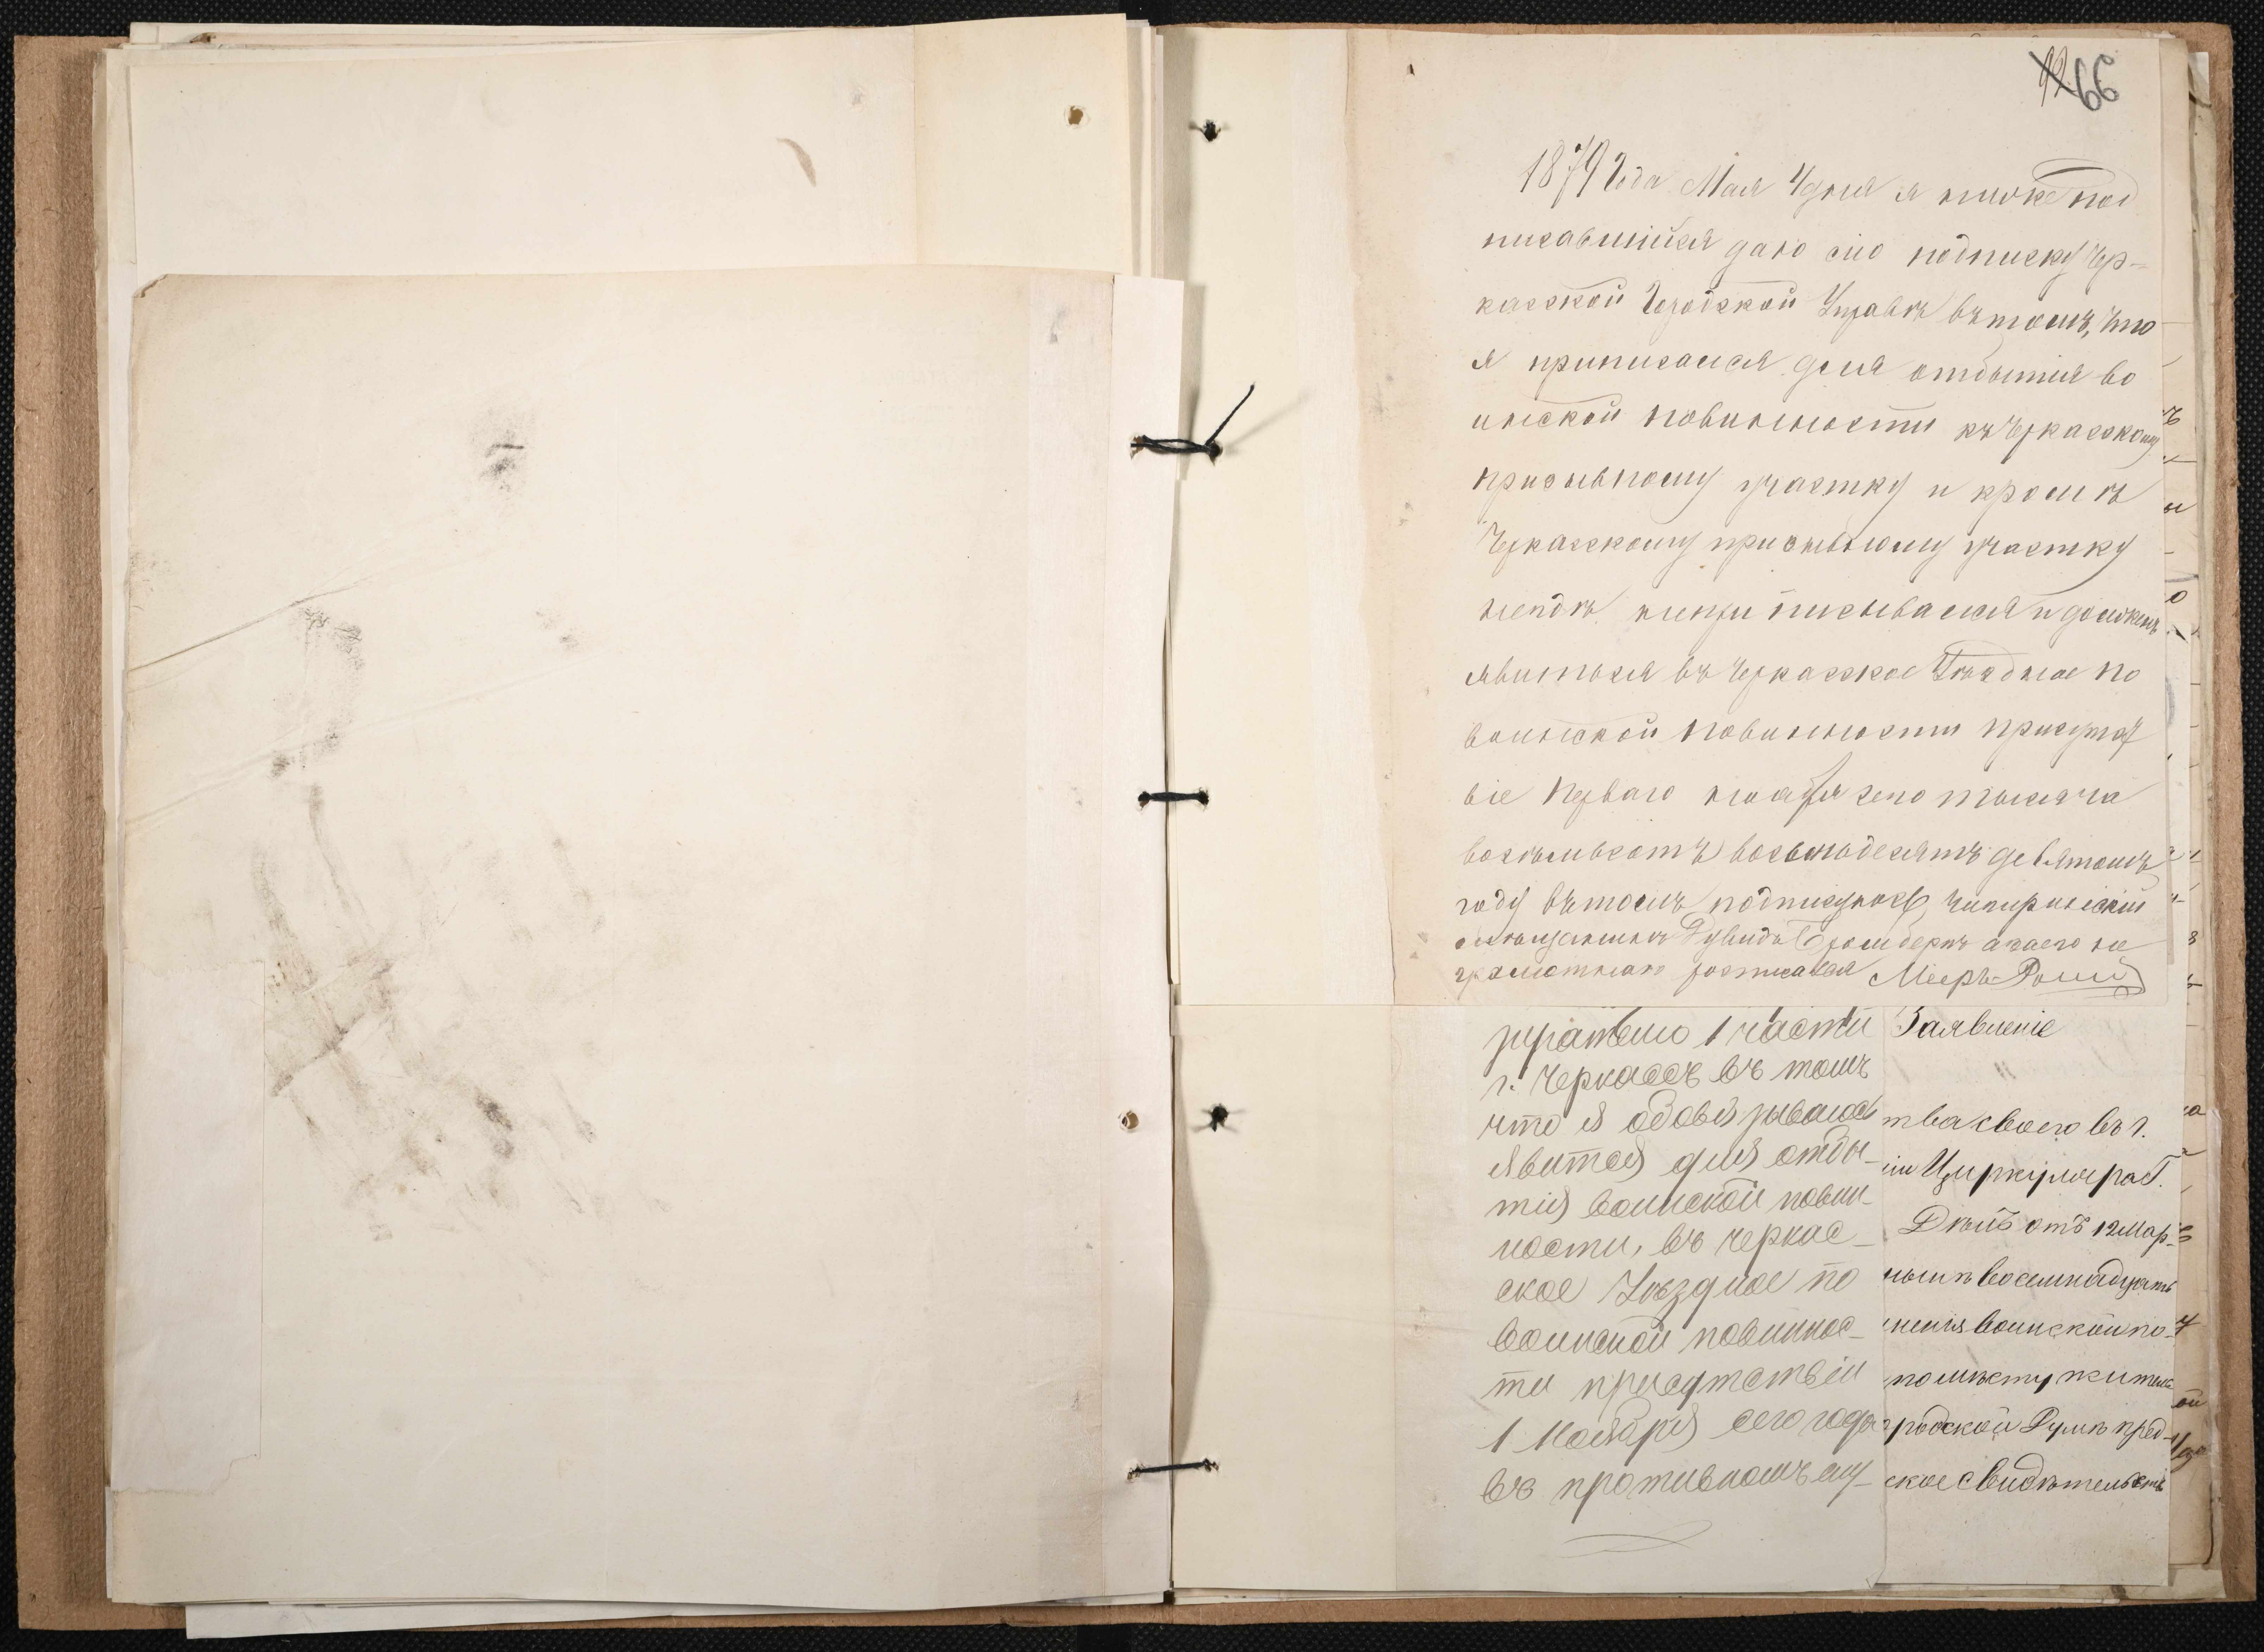 92 66
1879 Года Мая 4 дня я ниже под
писавшійся даю сію подписку Чер=
касской Городской Управѣ въ томъ, что
я приписался для отбытія во
инской повинности къ Черкасскому
призывному участку и кромѣ
Черкасскому призывному участку
негдѣ неприписывался и долженъ
явиться въ Черкасское Уѣздное по
воинской повинности присутст
віе Перваго ноября сего тысяча
восемьсотъ восемьдесятъ девятомъ
году въ томъ подписуюсь, Чигиринскій
мѣщанинъ Дувидъ Бромберкъ а заего не
грамотнаго росписался Мееръ
1 части
г. Черкассъ въ томъ
что я обовязываюсь
явится для отбы-
тія воинской повин-
ности, въ Черкас-
ское Уѣздное по
воинской повиннос-
ти присутствіи
1 Ноября сего года
въ противномъ слу-
Заявленіе
тва своего въ г.
іи Циркуляра Г.
отъ 12 Мар-
восемнадцать
ненія воинской по-
по мѣсту житель
родской Думѣ пред-
ское свидѣтельств